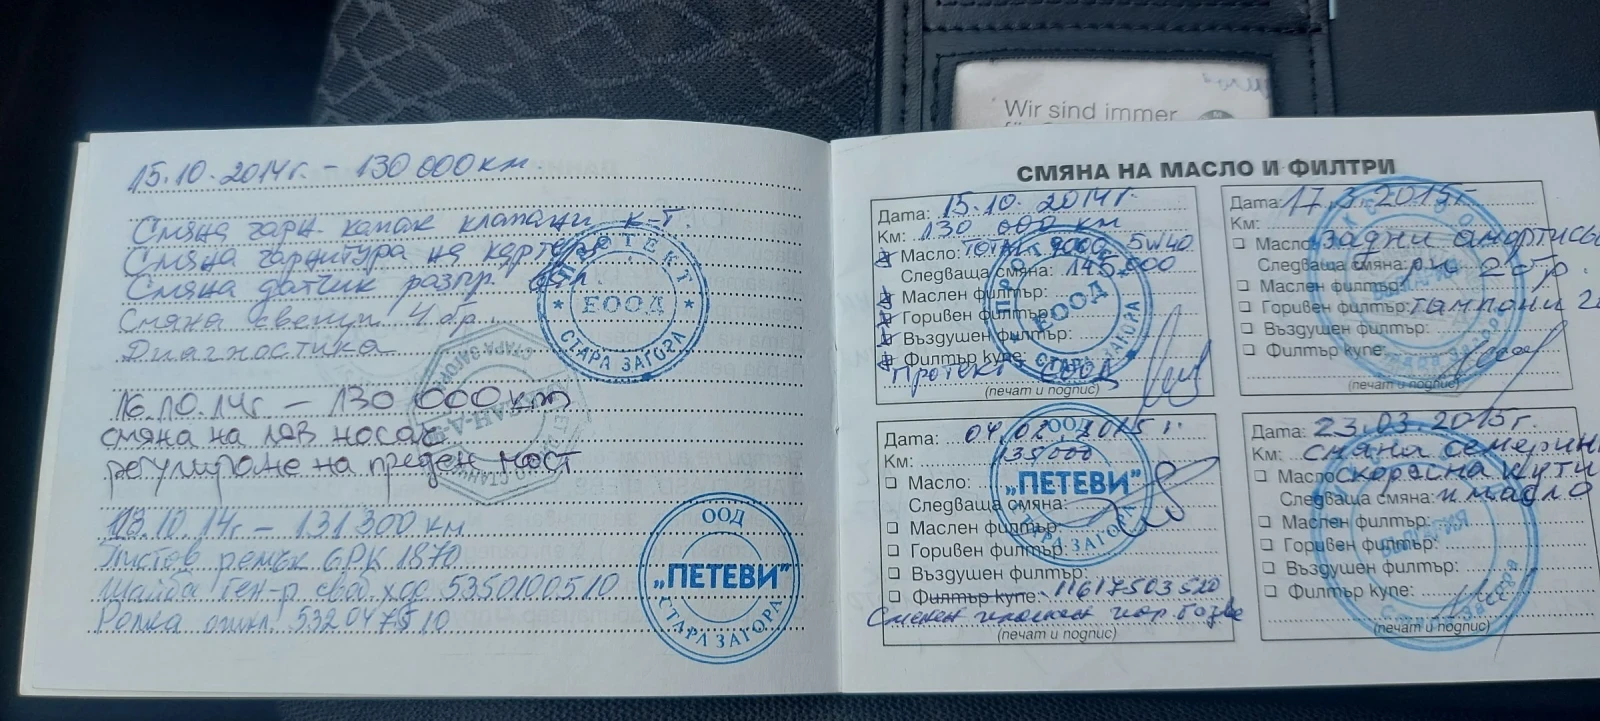 Wir sind immer
15.10.2014г. - 130 000 км.
Смяна гарн. капак клапани к-т.
Смяна гарнитура на картера
Смяна датчик разпр. вал.
Смяна свещи 4 бр.
Диагностика
ПРОТЕКТ
ЕООД
СТАРА ЗАГОРА
16.10.14г - 130 000 km
смяна на ляв носач
регулиране на преден мост
18.10.14г - 131 300 км
Пистов ремък 6PK 1870
Шайба ген-р своб. ход 535010510
Ролка 532047510
ООД
„ПЕТЕВИ"
СТАРА ЗАГОРА
СМЯНА НА МАСЛО И ФИЛТРИ
Дата: 15.10.2014г.
Км: 130 000 км
Масло: TOTAL 9000 5W40
Следваща смяна: 145 000
Маслен филтър:
Горивен филтър:
Въздушен филтър:
Филтър купе:
Протект ЕООД
(печат и подпис)
Дата: 04.02.2015г.
Км: 135000
Масло:
Следваща смяна:
Маслен филтър:
Горивен филтър:
Въздушен филтър:
Филтър купе: 11617503520
Сменен
(печат и подпис)
ООД
„ПЕТЕВИ"
СТАРА ЗАГОРА
Дата: 17.3.2015г.
Км:
Масло: задни амортись
Следваща смяна: 2бр.
Маслен филтър:
Горивен филтър: тампони 2б
Въздушен филтър:
Филтър купе:
(печат и подпис)
Дата: 23.03.2015г.
Км: смяна семерин
Масло скоросна кути
Следваща смяна: и масло
Маслен филтър:
Горивен филтър:
Въздушен филтър:
Филтър купе:
(печат и подпис)